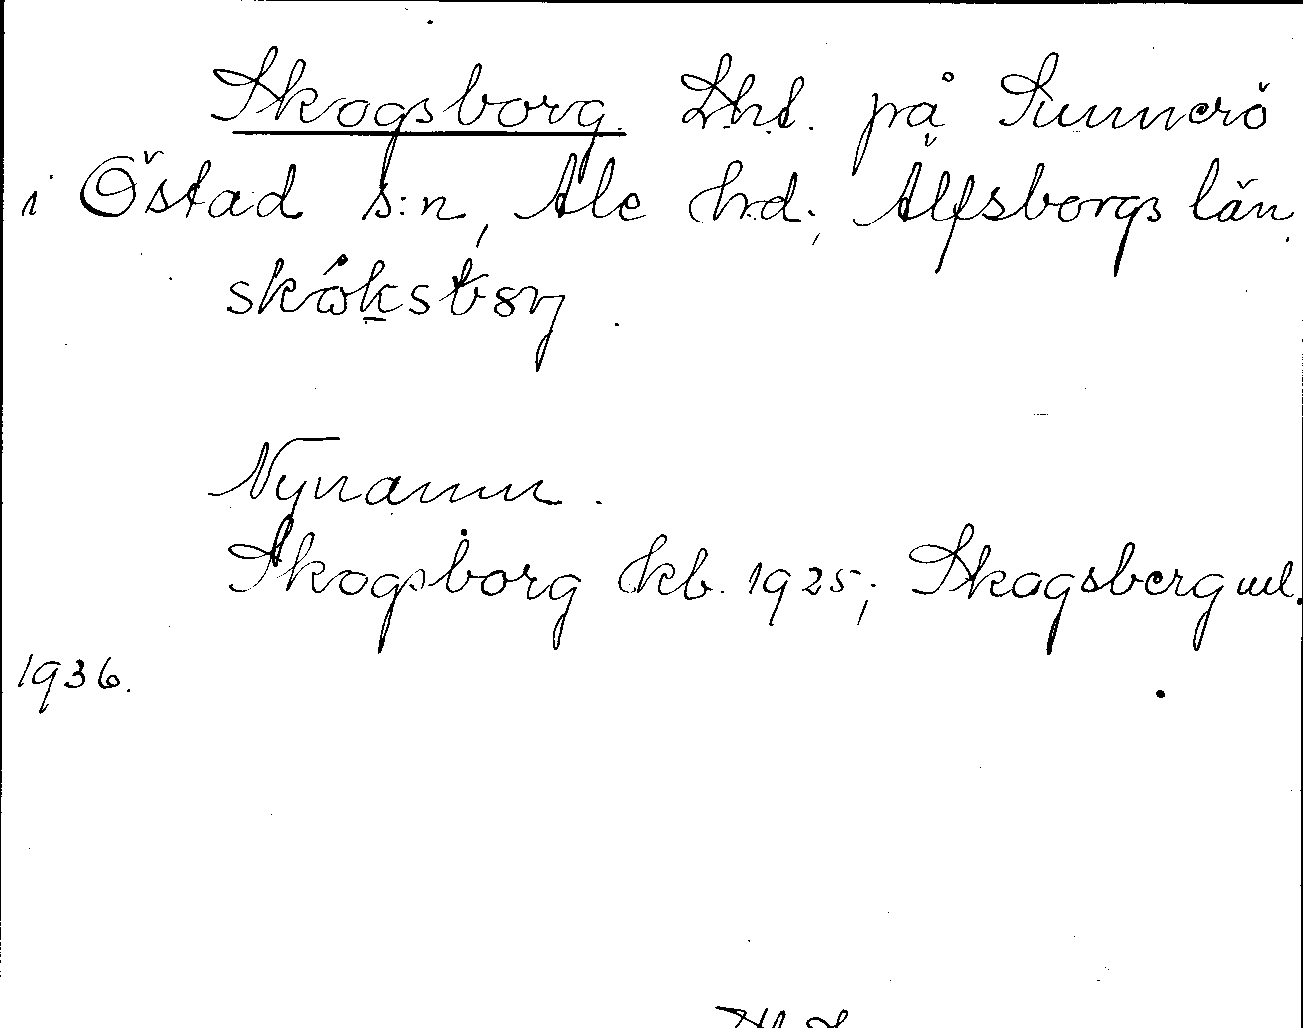 Skogsborg. Lht. på Sunnerö
i Östad s:n, Ale hrd; Älfsborgs län.
Nynamn.
Skogsborg kb. 1925; Skogsberg ml.
1936.